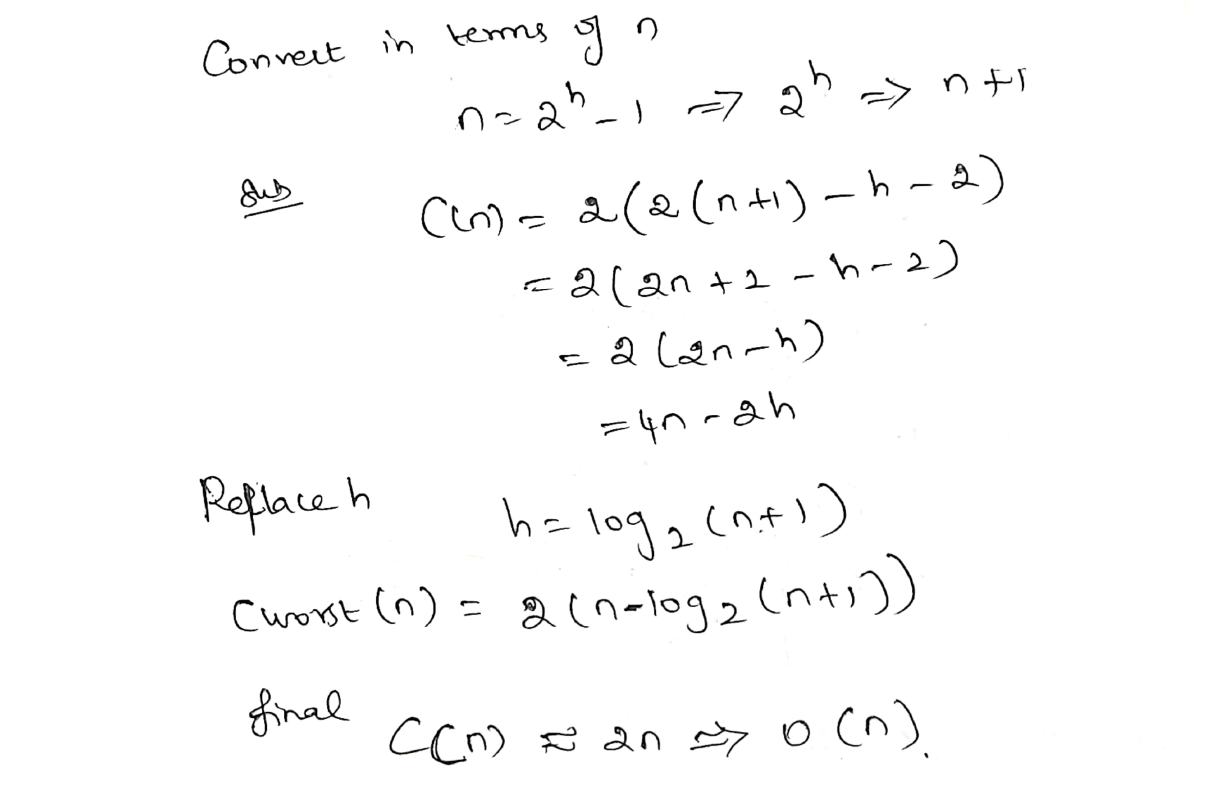 Convert in terms of n
n = 2^h - 1 => 2^h => n+1
Sub C(n) = 2(2(n+1) - h - 2)
= 2(2n+2 - h - 2)
= 2(2n-h)
= 4n - 2h
Replace h h = log₂(n+1)
Cworst(n) = 2(n-log₂(n+1))
final C(n) ≈ 2n => O(n).